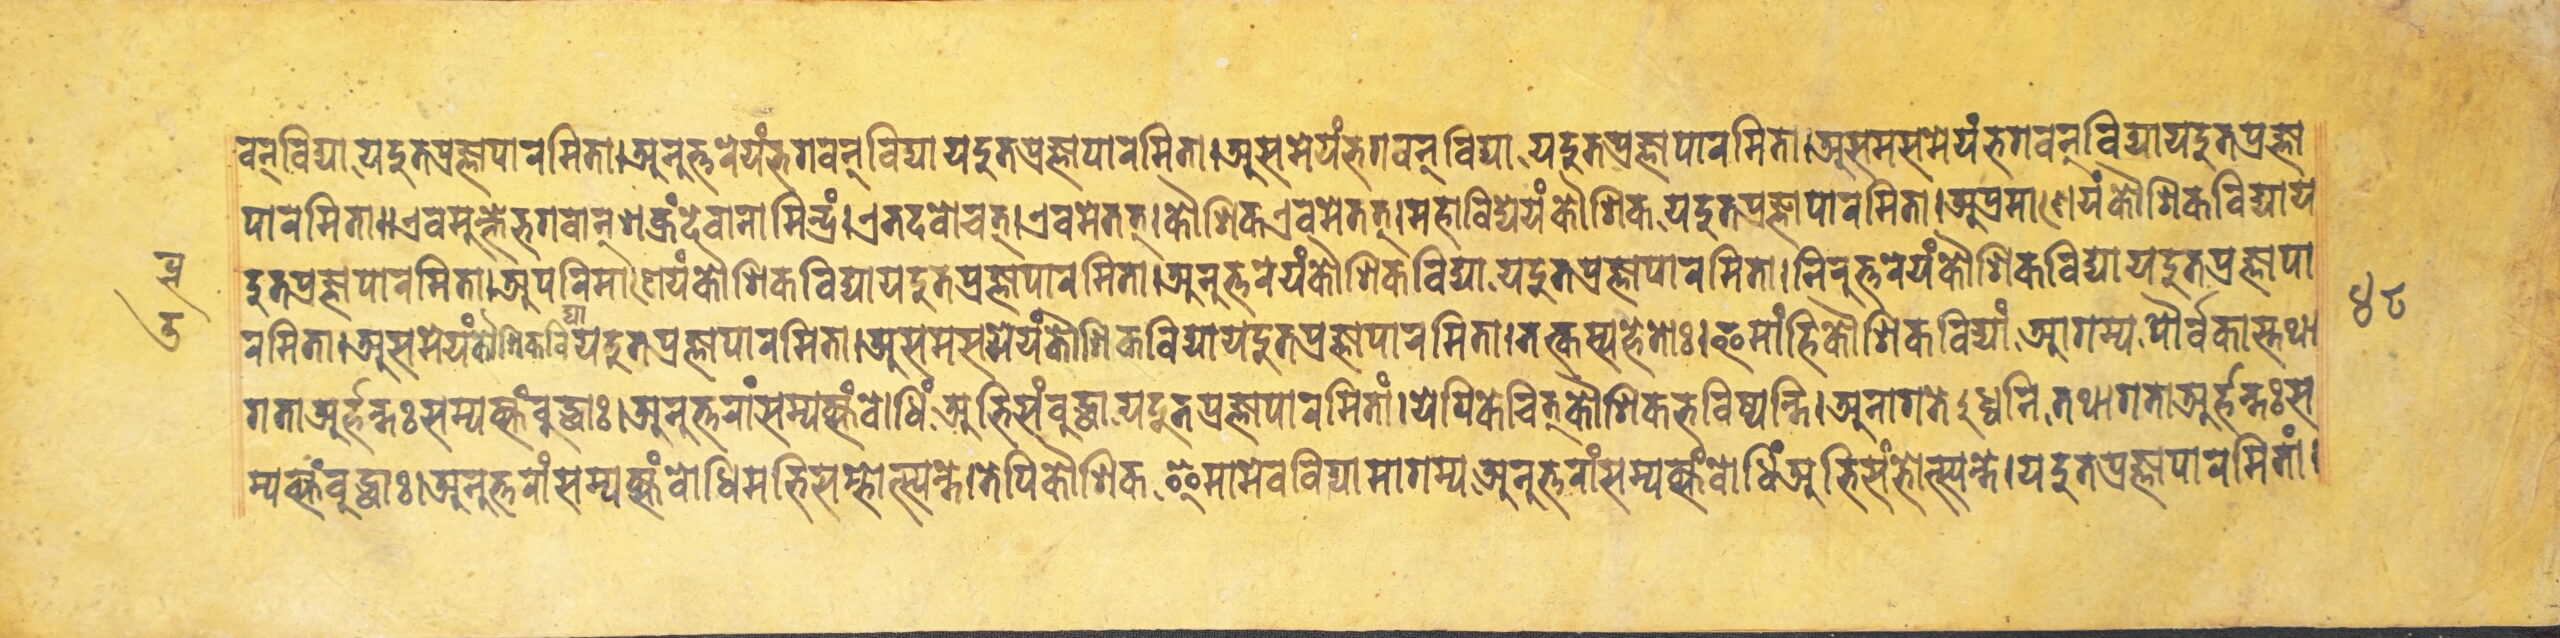 वन्विद्या यदुतप्रज्ञापारमिता।अनुत्तरेयंभगवन्विद्या यदुतप्रज्ञापारमिता।असमेयंभगवन्विद्या यदुतप्रज्ञापारमिता।असमसमेयंभगवन्विद्यायदुतप्रज्ञा
पारमिता॥एवमुक्तेभगवान्शक्रंदेवानामिन्द्रं।एतदवोचत्।एवमेतत्।कौशिकएवमेतत्।महाविद्येयंकौशिक यदुतप्रज्ञापारमिता।अप्रमाणेयंकौशिकविद्याय
दुतप्रज्ञापारमिता।अपरिमाणेयंकौशिकविद्यायदुतप्रज्ञापारमिता।अनुत्तरेयंकौशिकविद्या यदुतप्रज्ञापारमिता।निरुत्तरेयंकौशिकविद्या यदुतप्रज्ञापा
रमिता।असमेयंकौशिकविद्यायदुतप्रज्ञापारमिता।असमसमेयंकौशिकविद्यायदुतप्रज्ञापारमिता।तत्कस्यहेतोः।इमांहिकौशिकविद्यां आगम्य पौर्वकास्तथा
गताअर्हन्तःसम्यक्संबुद्धाः।अनुत्तरांसम्यक्संबोधिं अभिसंबुद्धा यदुतप्रज्ञापारमितां।येपिकेचित्कौशिकभविष्यन्ति।अनागतेऽध्वनि तथागताअर्हन्तःस
म्यक्संबुद्धाः।अनुत्तरांसम्यक्संबोधिमभिसम्भोत्स्यन्ते।तेपिकौशिक इमामेवविद्यामागम्य अनुत्तरांसम्यक्संबोधिंअभिसंभोत्स्यन्ते।यदुतप्रज्ञापारमितां।